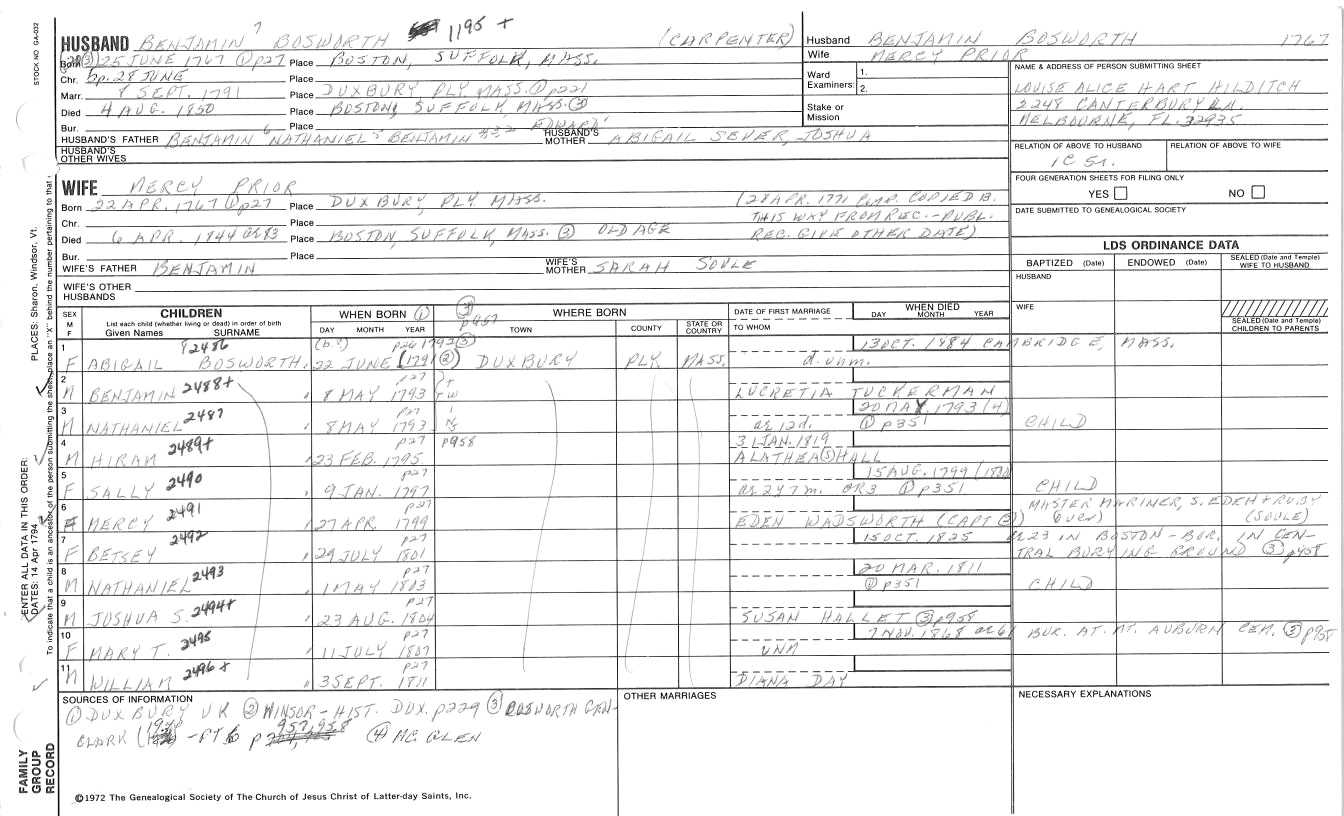 STOCK NO. GA-032
HUSBAND BENJAMIN 7 BOSWORTH 1195 + (CARPENTER)
Born (3) 25 JUNE 1767 (1) p27 Place BOSTON, SUFFOLK, MASS.
Chr. bp. 28 JUNE Place
Marr. 8 SEPT. 1791 Place DUXBURY, PLY. MASS. (1) p221
Died 4 AUG. 1850 Place BOSTON, SUFFOLK, MASS. (3)
Bur. Place
HUSBAND'S FATHER BENJAMIN 6 NATHANIEL 5 BENJAMIN EDWARD 1 HUSBAND'S MOTHER ABIGAIL SEVER, JOSHUA
HUSBAND'S OTHER WIVES
Husband BENJAMIN BOSWORTH 1767
Wife MERCY PRIOR
Ward Examiners: 1. 2.
Stake or Mission
NAME & ADDRESS OF PERSON SUBMITTING SHEET
LOUISE ALICE HART HILDITCH
2248 CANTERBURY LN.
MELBOURNE, FL. 32935
RELATION OF ABOVE TO HUSBAND RELATION OF ABOVE TO WIFE
1C 5r.
FOUR GENERATION SHEETS FOR FILING ONLY
YES NO
DATE SUBMITTED TO GENEALOGICAL SOCIETY
WIFE MERCY PRIOR
Born 22 APR. 1767 (1) p27 Place DUXBURY, PLY MASS. (28 APR. 1771 COPIED B.
Chr. Place THIS WAY FROM REC. - PUBL.
Died 6 APR. 1844 ae 83 Place BOSTON, SUFFOLK, MASS. (3) OLD AGE REC. GIVE OTHER DATE)
Bur. Place
WIFE'S FATHER BENJAMIN WIFE'S MOTHER SARAH SOULE
WIFE'S OTHER HUSBANDS
LDS ORDINANCE DATA
BAPTIZED (Date) ENDOWED (Date) SEALED (Date and Temple) WIFE TO HUSBAND
HUSBAND
WIFE
SEALED (Date and Temple) CHILDREN TO PARENTS
SEX M F CHILDREN List each child (whether living or dead) in order of birth Given Names SURNAME
WHEN BORN (1) DAY MONTH YEAR
(3) p957 WHERE BORN TOWN COUNTY STATE OR COUNTRY
DATE OF FIRST MARRIAGE TO WHOM
WHEN DIED DAY MONTH YEAR
1 2486 p26 1792 (3) 13 OCT. 1884 CAMBRIDGE, MASS.
F ABIGAIL BOSWORTH 22 JUNE (1791 (2) DUXBURY PLY MASS. d. unm.
2 p27
M BENJAMIN 2488+ 8 MAY 1793 LUCRETIA TUCKERMAN
3 p27 20 MAY 1793 (4)
M NATHANIEL 2487 8 MAY 1793 ae 12d. (1) p351 CHILD
4 p27 p958 31 JAN. 1819
M HIRAM 2489+ 23 FEB. 1795 ALATHEA (S) HALL
5 p27 15 AUG. 1799 / 1800
F SALLY 2490 9 JAN. 1797 ae 2 y 7 m. OR 3 (1) p351 CHILD
6 p27 MASTER MARINER, S. EDEN & RUBY
F MERCY 2491 27 APR 1799 EDEN WADSWORTH (CAPT (3)) (SOULE)
7 2492 p27 15 OCT. 1825 ae 23 IN BOSTON - BUR. IN CEN-
F BETSEY 29 JULY 1801 TRAL BURYING GROUND (3) p958
8 p27 20 MAR. 1811
M NATHANIEL 2493 1 MAY 1803 (1) p351 CHILD
9 p27
M JOSHUA S. 2494+ 23 AUG. 1804 SUSAN HALLET (3) p958
10 p27 7 NOV. 1868 ae 61 BUR. AT MT. AUBURN CEM. (3) p958
F MARY T. 2495 11 JULY 1807 UNM
11 p27
M WILLIAM 2496+ 3 SEPT. 1811 DIANA DAY
SOURCES OF INFORMATION
(1) DUXBURY VR (2) WINSOR - HIST. DUX. p229 (3) BOSWORTH GEN-
CLARK - PT 6 p 957, 958 (4) MC GLEN
OTHER MARRIAGES
NECESSARY EXPLANATIONS
©1972 The Genealogical Society of The Church of Jesus Christ of Latter-day Saints, Inc.
FAMILY GROUP RECORD
ENTER ALL DATA IN THIS ORDER:
DATES: 14 Apr 1794
PLACES: Sharon, Windsor, Vt.
To indicate that a child is an ancestor of the person submitting the sheet, place an "X" behind the number pertaining to that